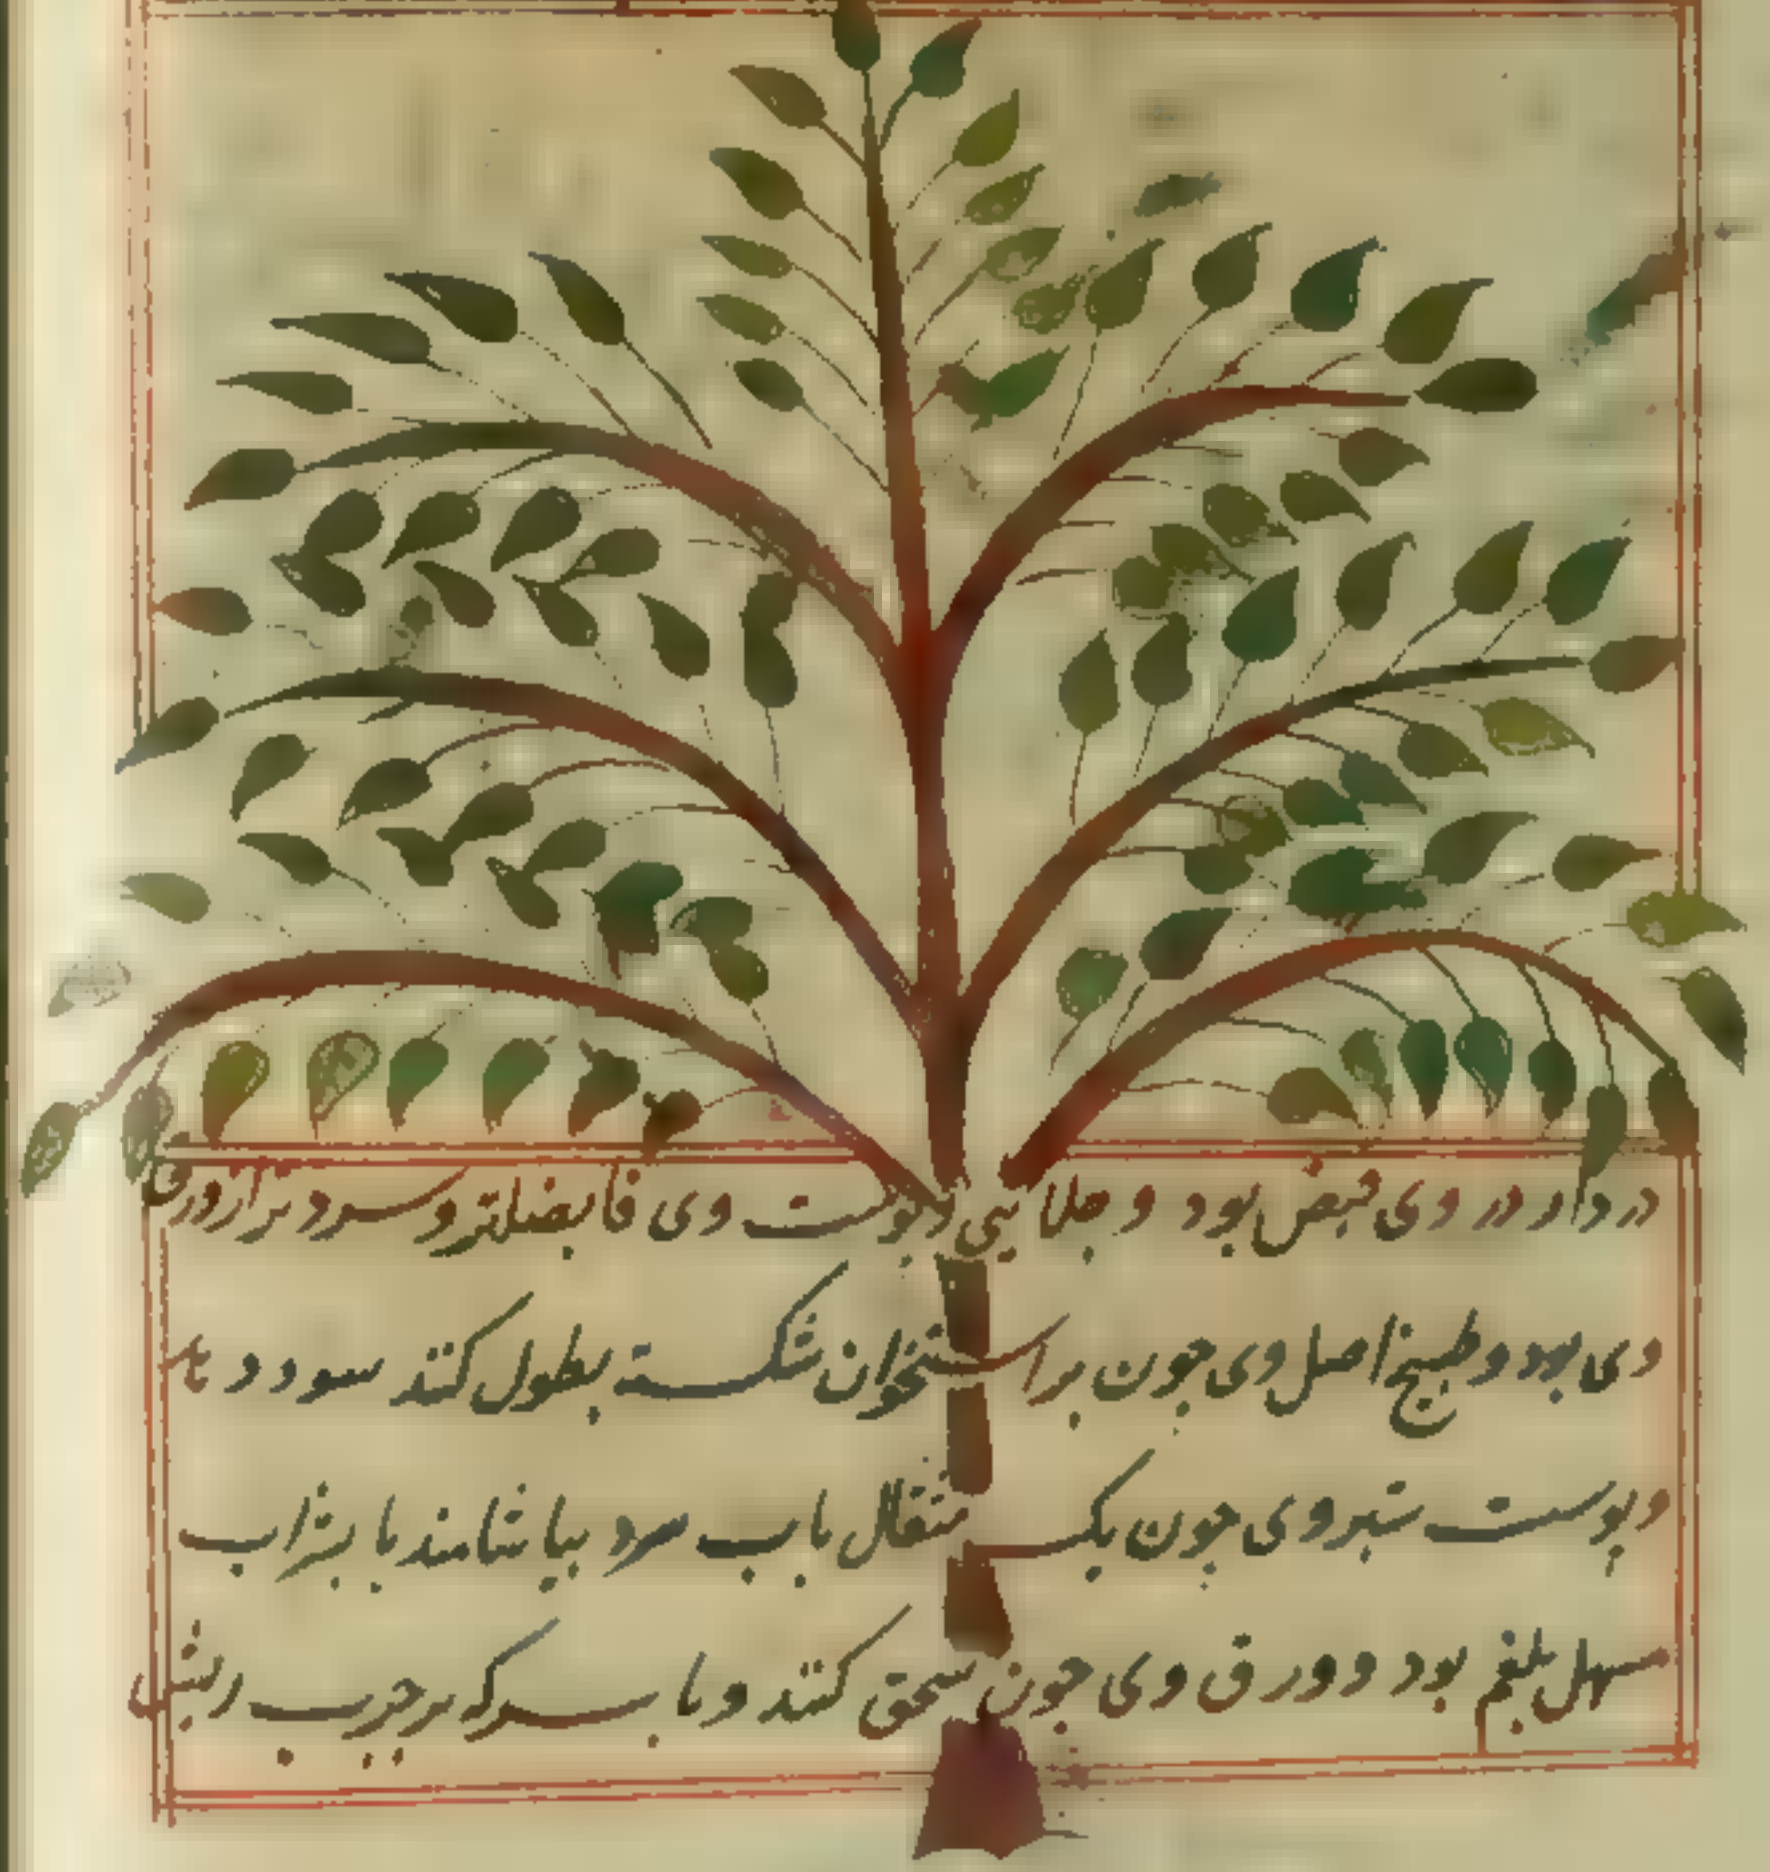 دردار در وی قبض بود و جلایی و پوست وی قابض‌تر و سردتر از ورق
وی بود و طبیخ اصل وی جون بر استخوان شکسته بطول کنند سود دهد
و پوست ستبر وی جون یک مثقال باب سرد بیاشامند یا بشراب
مسهل بلغم بود و ورق وی جون سحق کنند و با سرکه بر جرب ریش